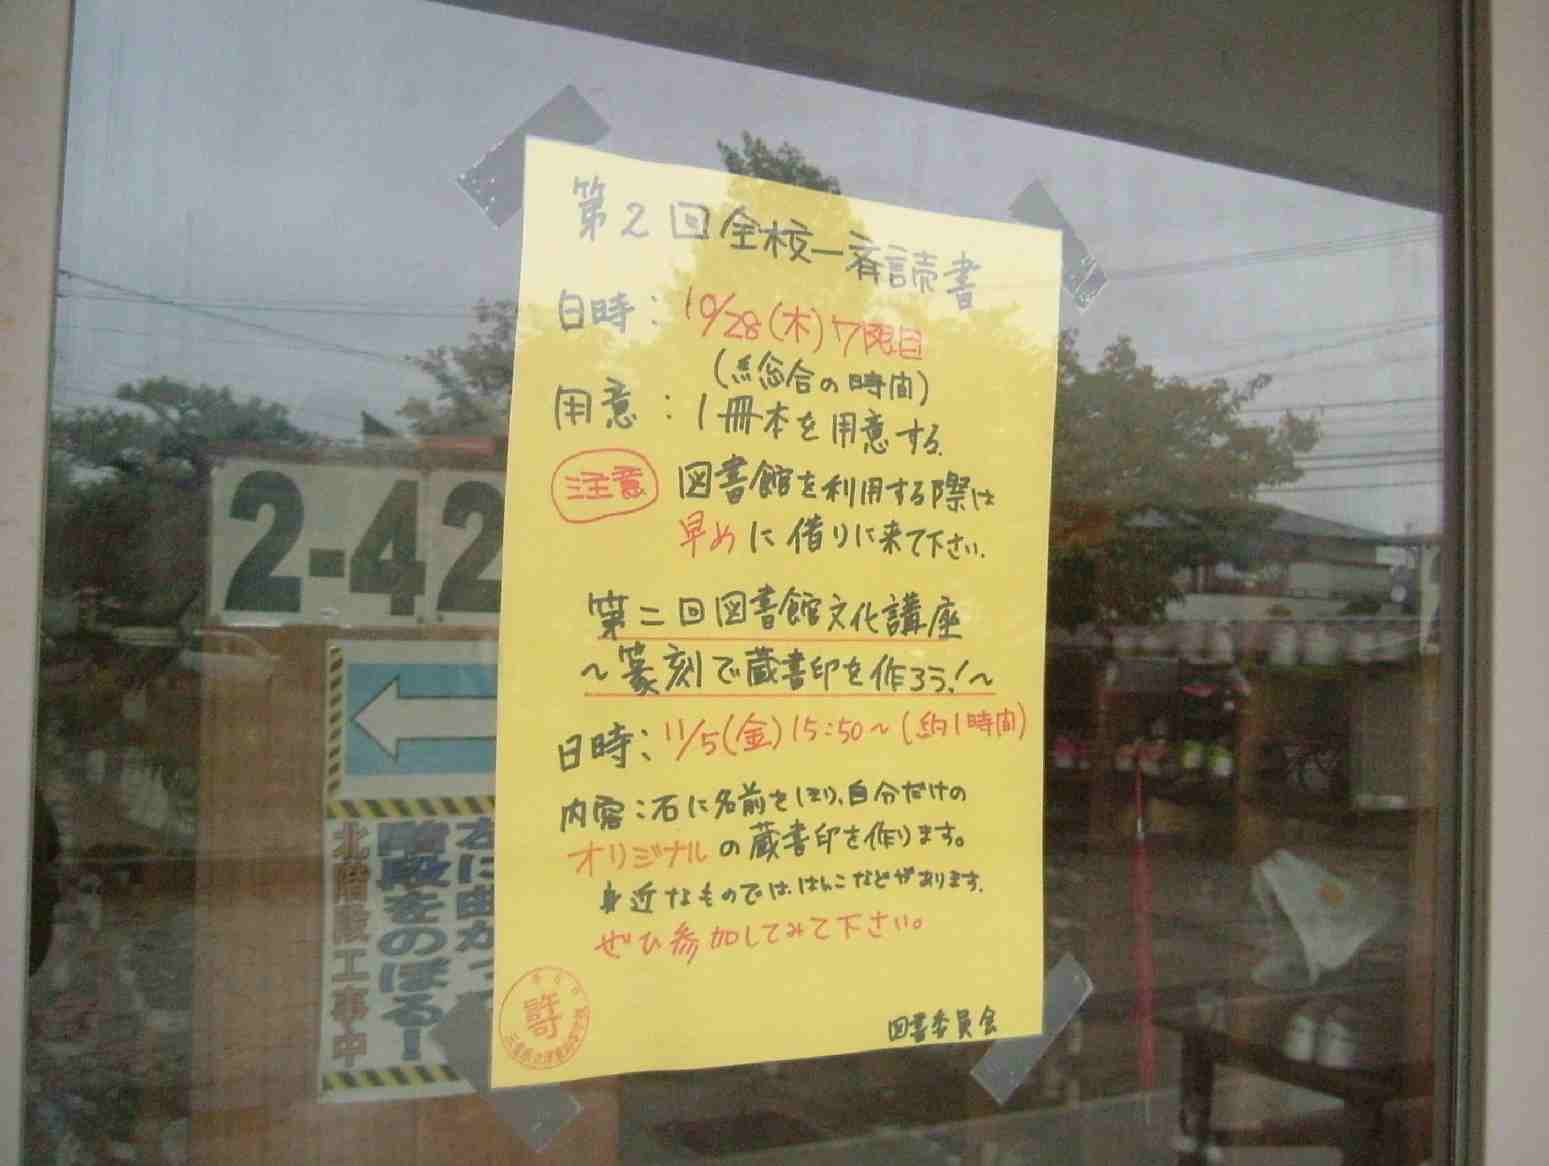 第2回全校一斉読書
日時：10/28(木)7限目
(総合の時間)
用意：1冊本を用意する.
注意 図書館を利用する際は
早めに借りに来て下さい.
第二回図書館文化講座
～篆刻で蔵書印を作ろう！～
日時：11/5(金)15:50～(約1時間)
内容：石に名前をほり、自分だけの
オリジナルの蔵書印を作ります。
身近なものでは、はんこなどがあります.
ぜひ参加してみて下さい。
図書委員会
許可
2-42
左に曲がっ
階段をのぼる！
北階段工事中